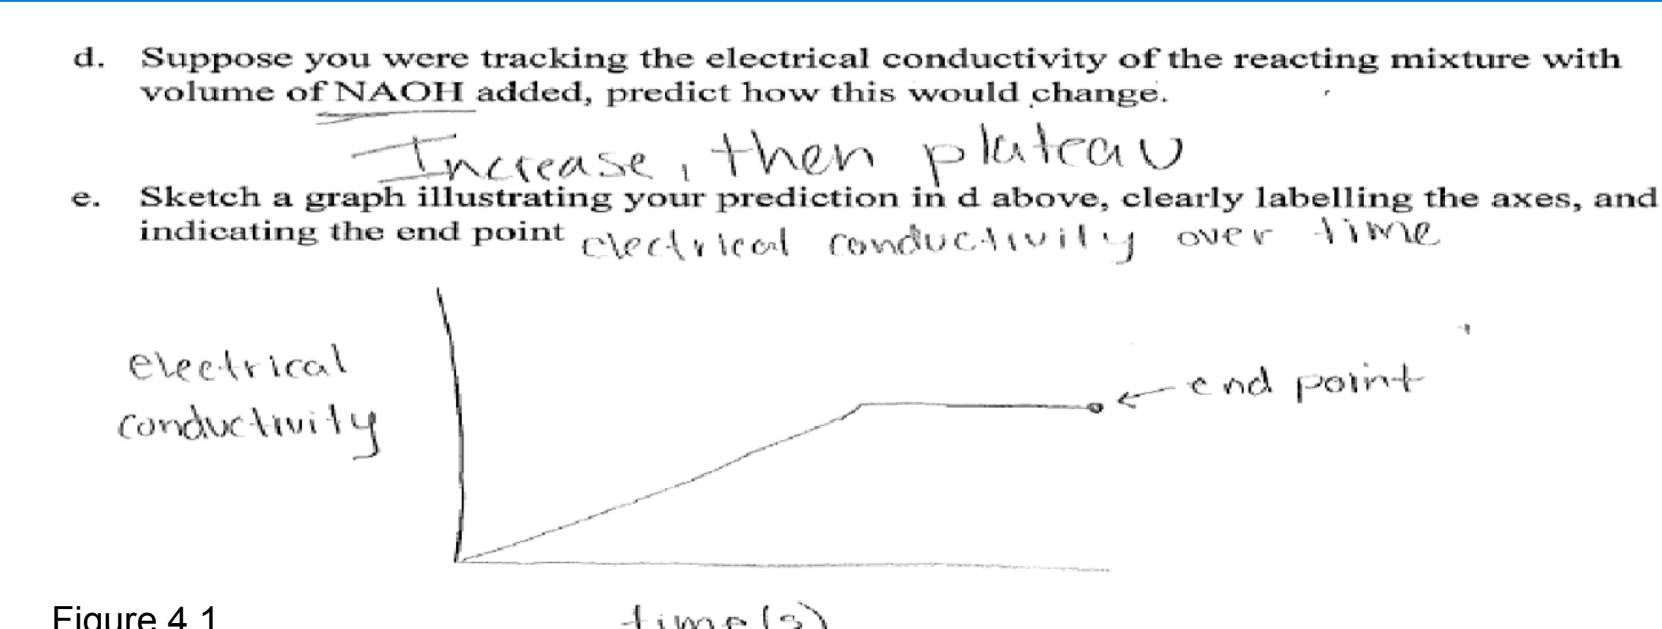 d. Suppose you were tracking the electrical conductivity of the reacting mixture with
volume of NAOH added, predict how this would change.
Increase, then plateau
e. Sketch a graph illustrating your prediction in d above, clearly labelling the axes, and
indicating the end point electrical conductivity over time
electrical
conductivity
← end point
time (s)
Figure 4.1